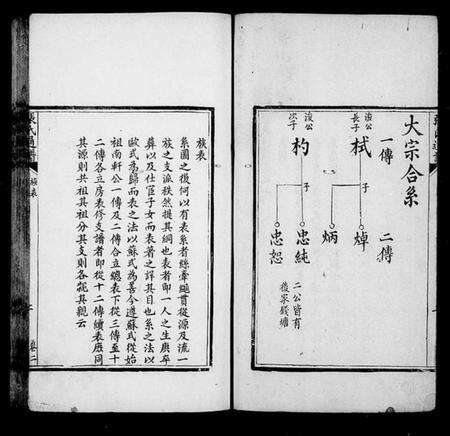 大宗合系
一傳
二傳
浚公
長子
栻
子
焯
炳
浚公
次子
杓
子
忠純
忠恕
二公皆有
後累錢塘
族表
系圖之後何以有表系者絲牽繩貫從源及流一
族之支派秩然提其綱也表者即一人之生庚卒
葬以及仕官子女而表著之詳其目也系之法以
歐式為歸而表之法以蘇式為善今遵蘇式從始
祖南軒公一傳及二傳合立總表下從三傳至十
二傳各立房表修支譜者即從十二傳續表庶同
其源則共祖其祖分其支則各親其親云
族表